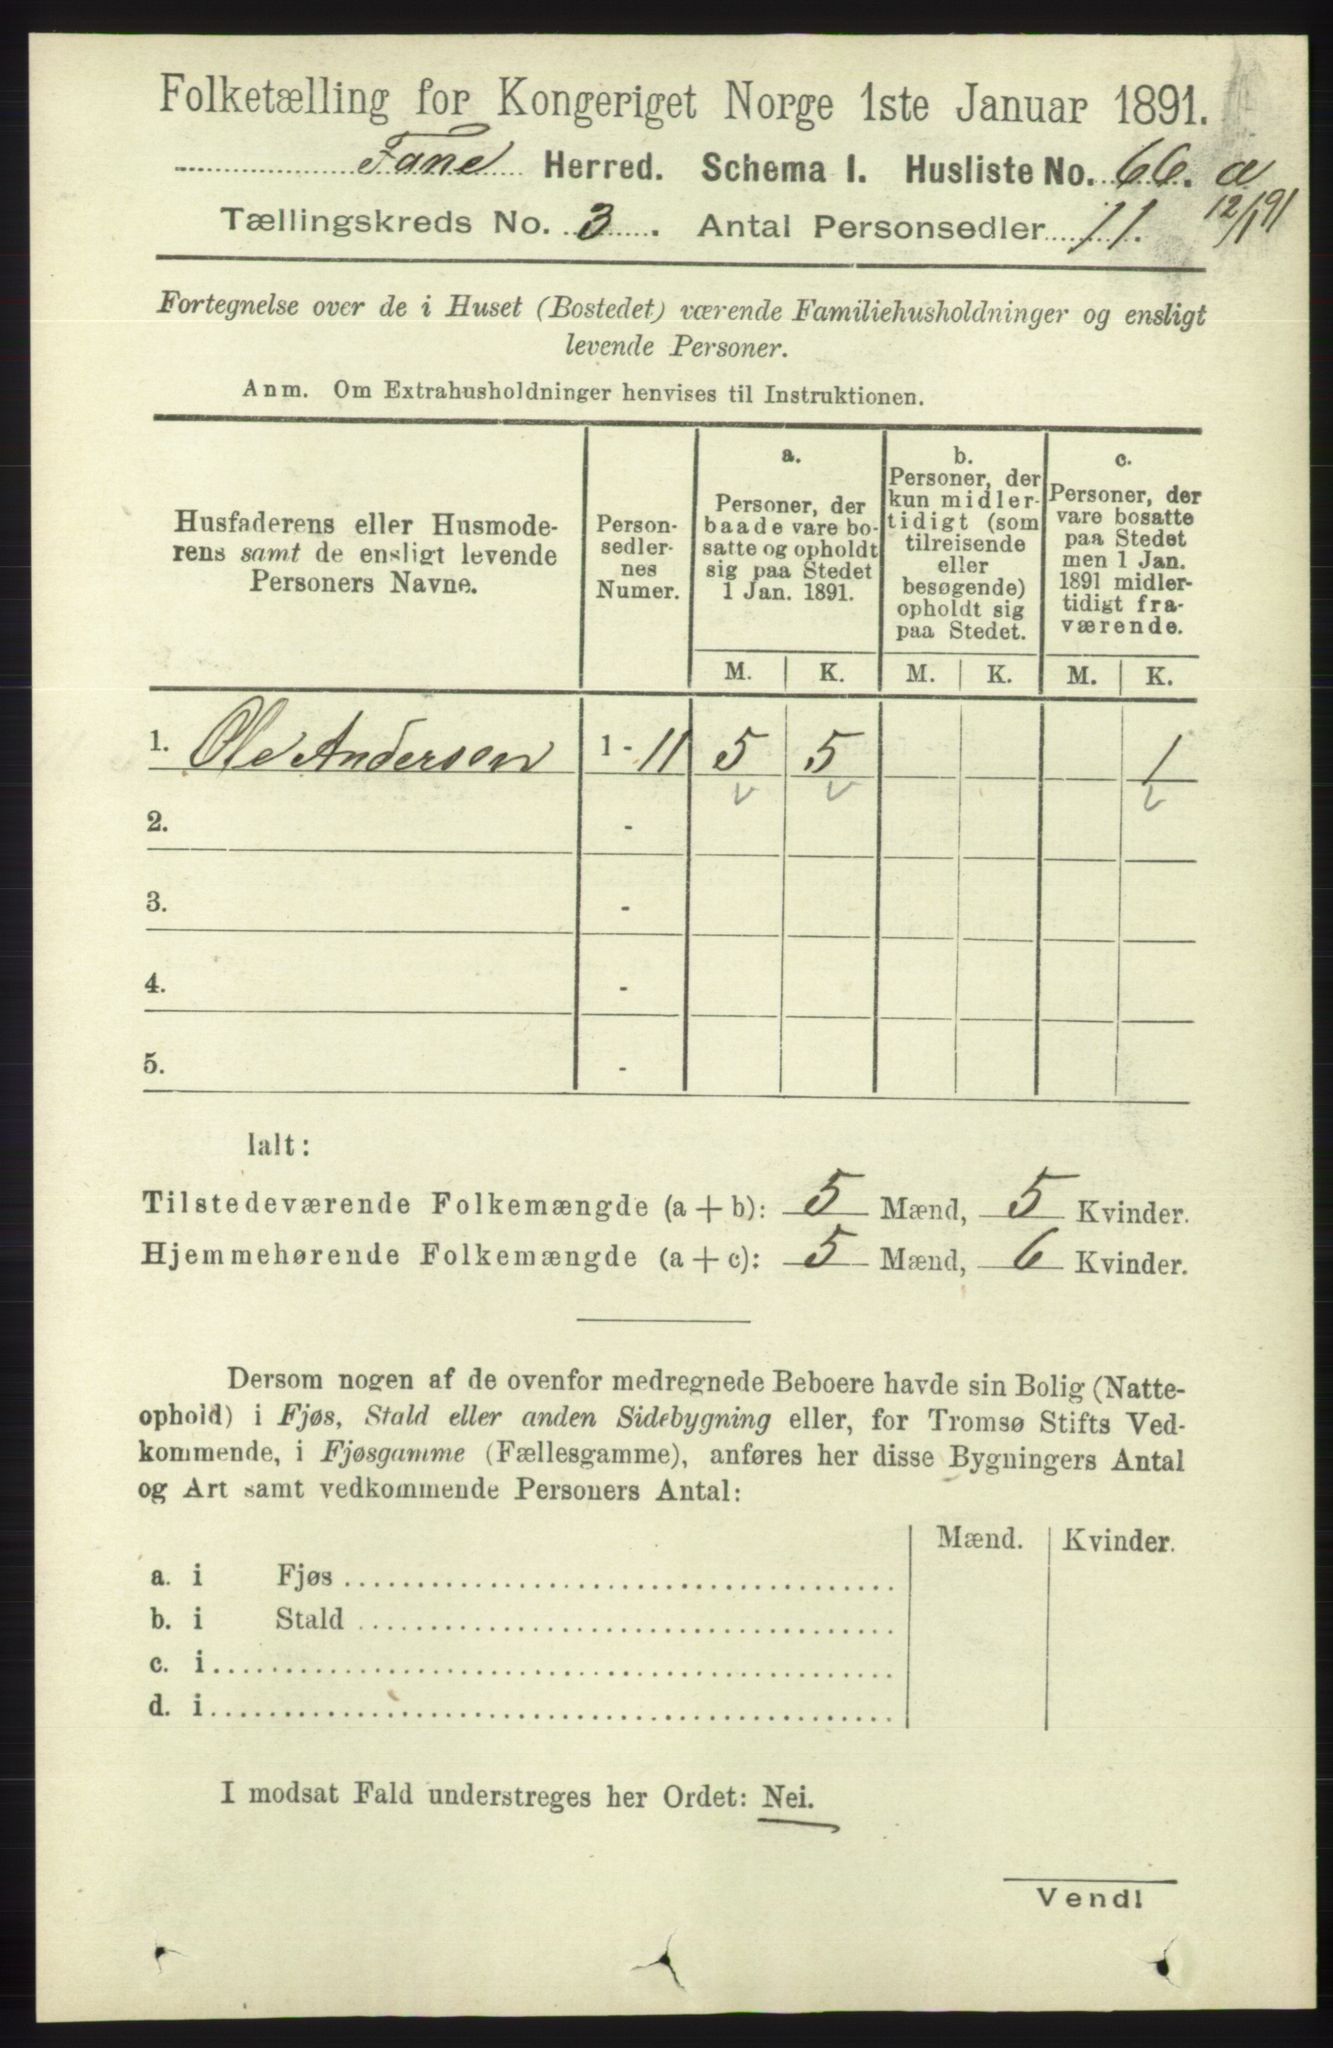 Folketælling for Kongeriget Norge 1ste Januar 1891.
Fane Herred. Schema I. Husliste No. 66. a
Tællingskreds No. 3. Antal Personsedler 11. 12/1 91
Fortegnelse over de i Huset (Bostedet) værende Familiehusholdninger og ensligt
levende Personer.
Anm. Om Extrahusholdninger henvises til Instruktionen.
Husfaderens eller Husmode-
rens samt de ensligt levende
Personers Navne.
Person-
sedler-
nes
Numer.
a.
Personer, der
baade vare bo-
satte og opholdt
sig paa Stedet
1 Jan. 1891.
b.
Personer, der
kun midler-
tidigt (som
tilreisende
eller
besøgende)
opholdt sig
paa Stedet.
c.
Personer, der
vare bosatte
paa Stedet
men 1 Jan.
1891 midler-
tidigt fra-
værende.
M. K. M. K. M. K.
1. Ole Andersen 1 - 11 5 5 1
2. -
3. -
4. -
5. -
Ialt:
Tilstedeværende Folkemængde (a + b): 5 Mænd, 5 Kvinder.
Hjemmehørende Folkemængde (a + c): 5 Mænd, 6 Kvinder.
Dersom nogen af de ovenfor medregnede Beboere havde sin Bolig (Natte-
ophold) i Fjøs, Stald eller anden Sidebygning eller, for Tromsø Stifts Ved-
kommende, i Fjøsgamme (Fællesgamme), anføres her disse Bygningers Antal
og Art samt vedkommende Personers Antal:
Mænd. Kvinder.
a. i Fjøs
b. i Stald
c. i
d. i
I modsat Fald understreges her Ordet: Nei.
Vend!